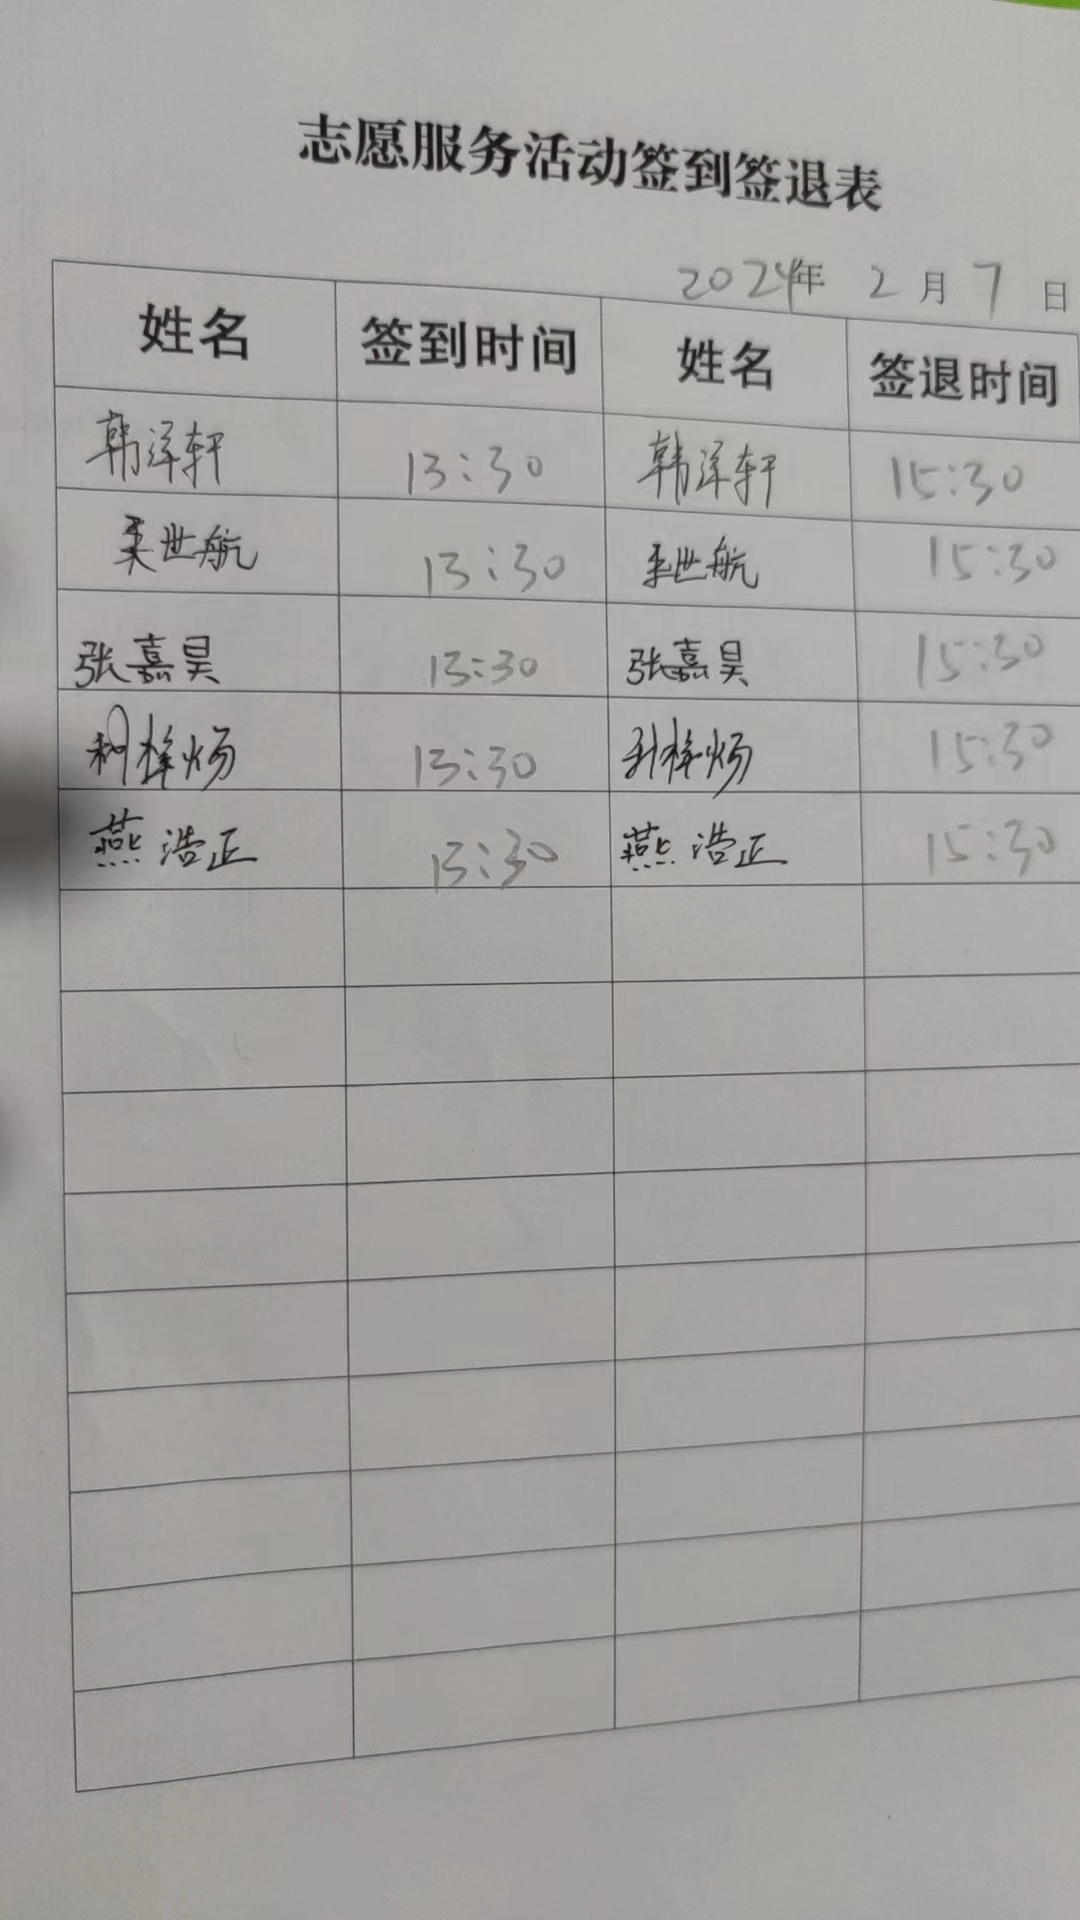 志愿服务活动签到签退表
2024年 2月7日
姓名 签到时间 姓名 签退时间
韩洋轩 13:30 韩洋轩 15:30
世航 13:30 世航 15:30
张嘉昊 13:30 张嘉昊 15:30
梓炀 13:30 梓炀 15:30
燕浩正 13:30 燕浩正 15:30